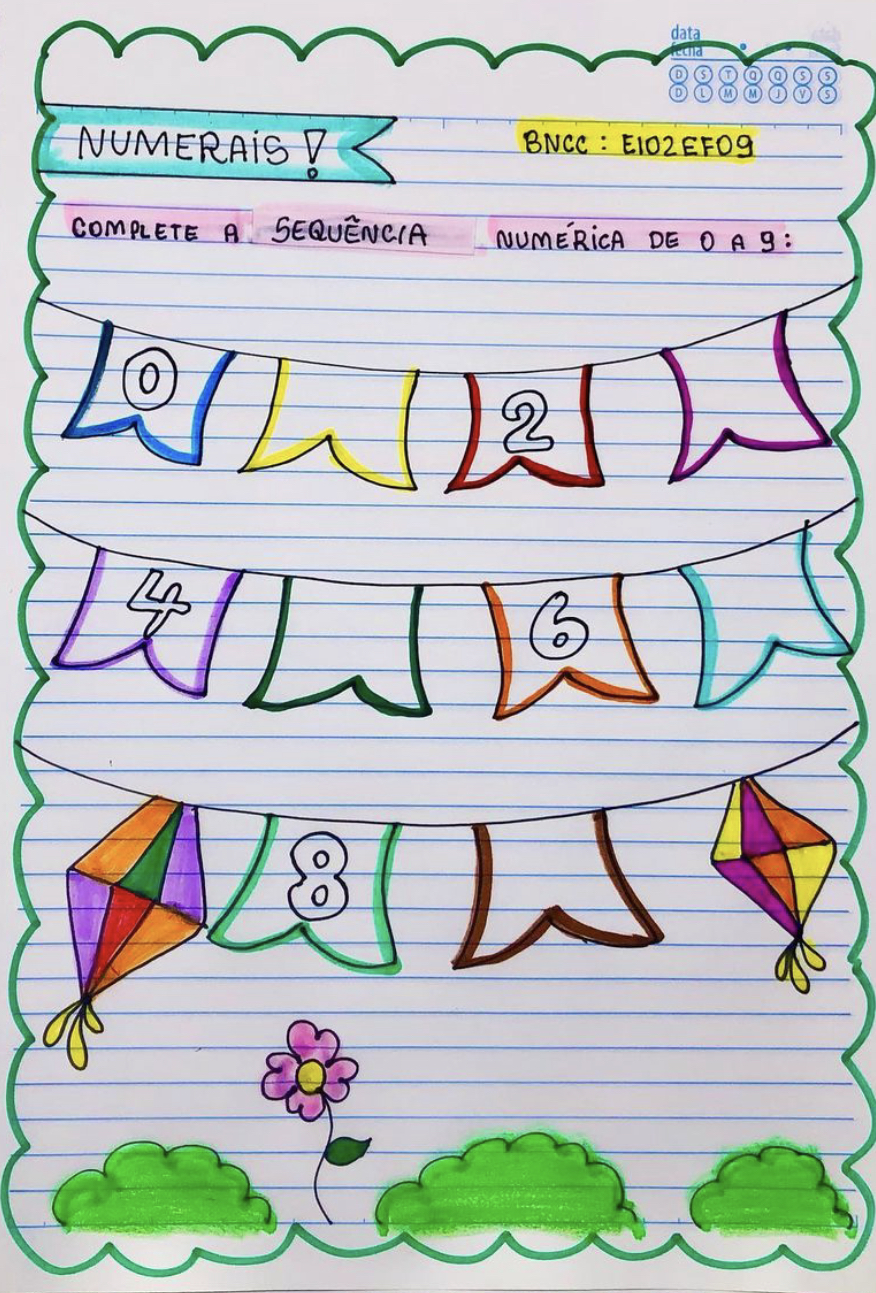 data
fecha
D S T Q Q S S
D L M M J V S
NUMERAIS!
BNCC: EI02EF09
COMPLETE A SEQUÊNCIA NUMÉRICA DE 0 A 9:
0 2
4 6
8